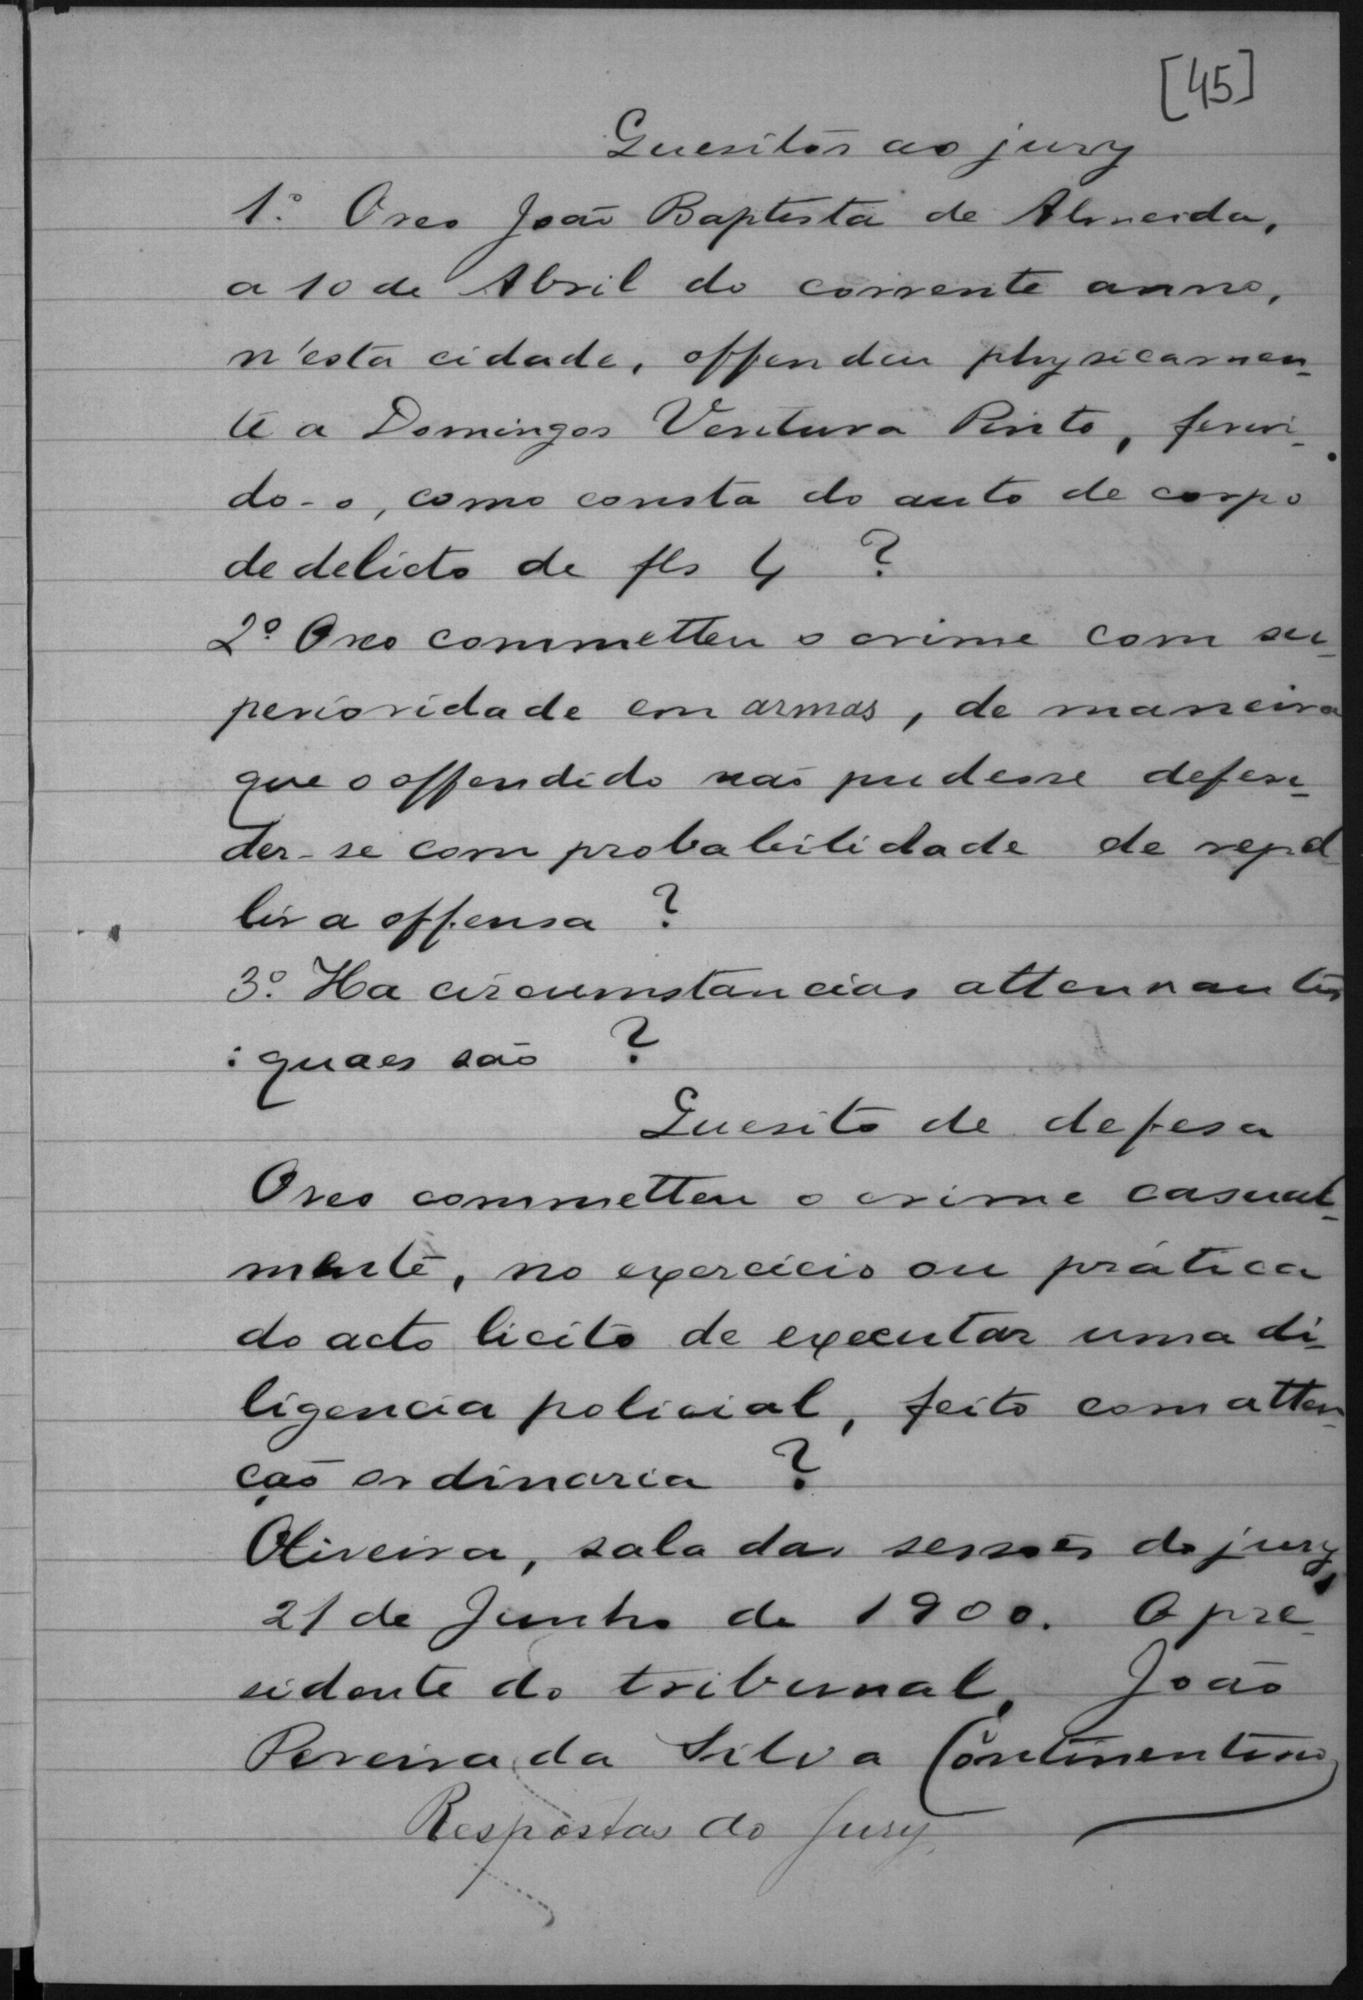 [45]
Quesitos ao jury
1.º O reo João Baptista de Almeida,
a 10 de Abril do corrente anno,
n'esta cidade, offendeu physicamen-
te a Domingos Ventura Pinto, ferin-
do-o, como consta do auto de corpo
de delicto de fls 4 ?
2º O reo commetteu o crime com su-
perioridade em armas, de maneira
que o offendido não pudesse defen-
der-se com probabilidade de repel
lir a offensa ?
3.º Ha circumstancias attenuantes
: quaes são ?
Quesito de defesa
O reo commetteu o crime casual-
mente, no exercicio ou prática
do acto licito de executar uma di-
ligencia policial, feito com atten-
ção ordinaria ?
Oliveira, sala das sessões do jury,
21 de Junho de 1900. O pre-
sidente do tribunal, João
Pereira da Silva Continentino
Respostas do Jury